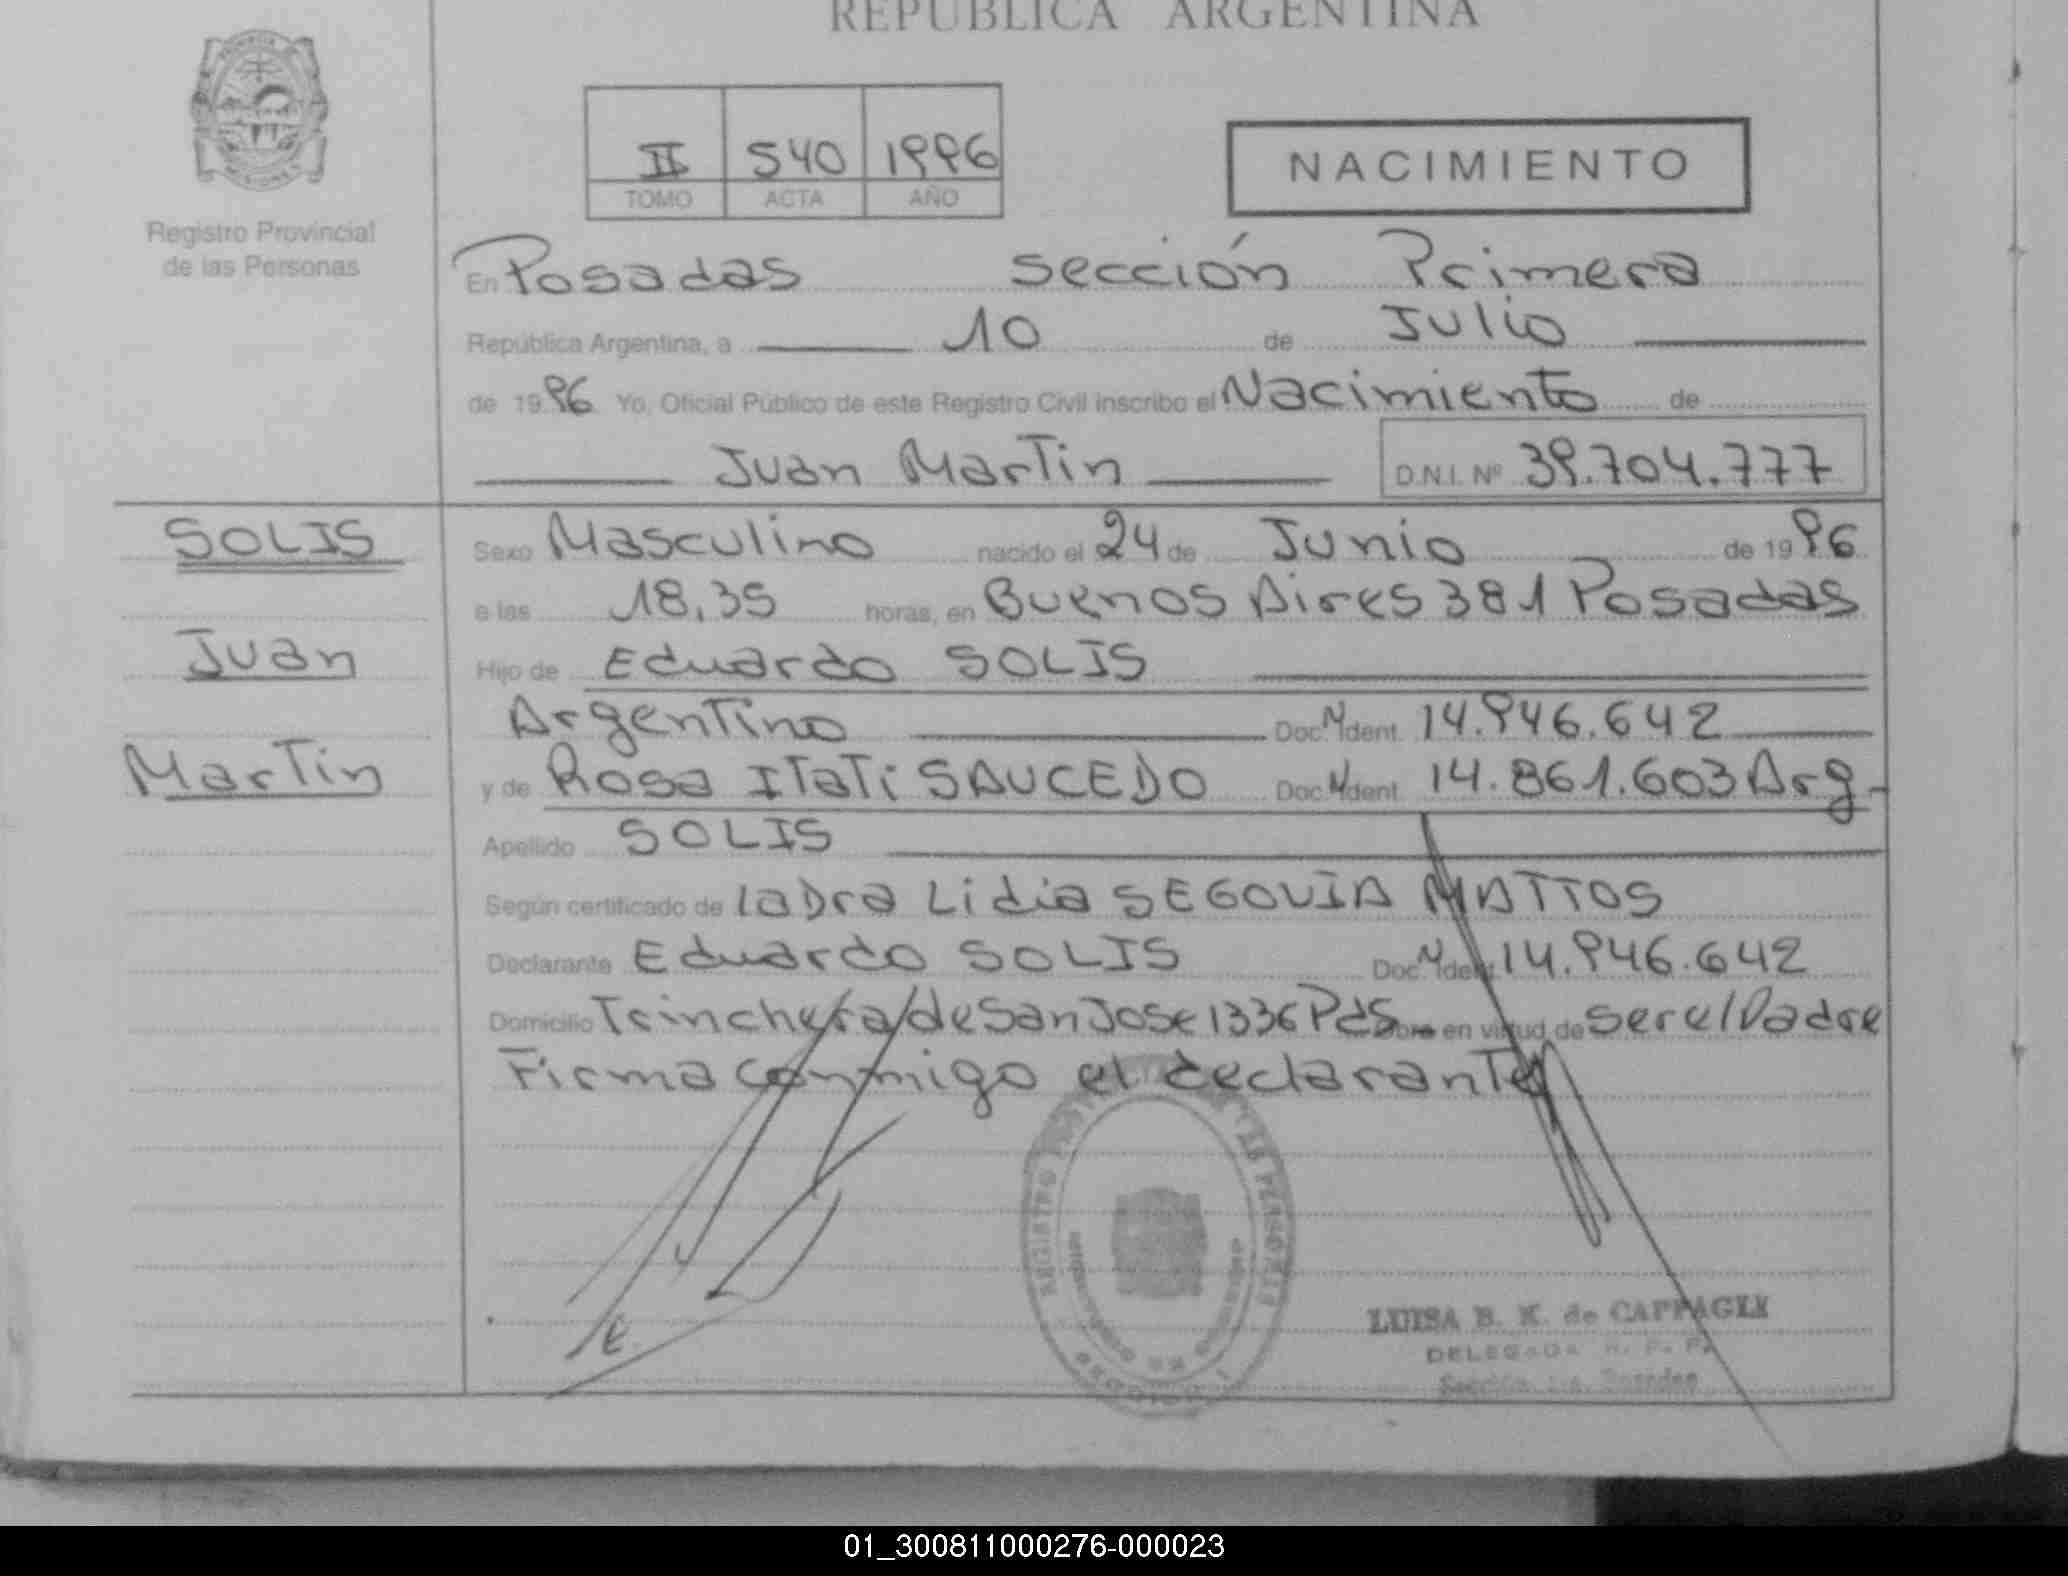 REPUBLICA ARGENTINA
PROVINCIA
MISIONES
Registro Provincial
de las Personas
II 540 1996
TOMO ACTA AÑO
NACIMIENTO
En Posadas sección Primera
República Argentina, a 10 de Julio
de 1996 Yo, Oficial Público de este Registro Civil inscribo el Nacimiento de
Juan Martin D.N.I. Nº 39.704.777
SOLIS
Juan
Martin
Sexo Masculino nacido el 24 de Junio de 1996
a las 18,35 horas, en Buenos Aires 381 Posadas
Hijo de Eduardo SOLIS
Argentino Doc. N Ident. 14.946.642
y de Rosa ITaTi SAUCEDO Doc. N Ident. 14.861.603 Arg.
Apellido SOLIS
Según certificado de la Dra Lidia SEGOVIA MATTOS
Declarante Eduardo SOLIS Doc. N Ident. 14.946.642
Domicilio Trinchera de San Jose 1336 Pds Obra en virtud de ser el Padre
Firma conmigo el declarante
REGISTRO PERSONAS
LUISA B. K. de CAPPAGLI
DELEGADA R. P. P.
Sección 1a. Posadas
01_300811000276-000023